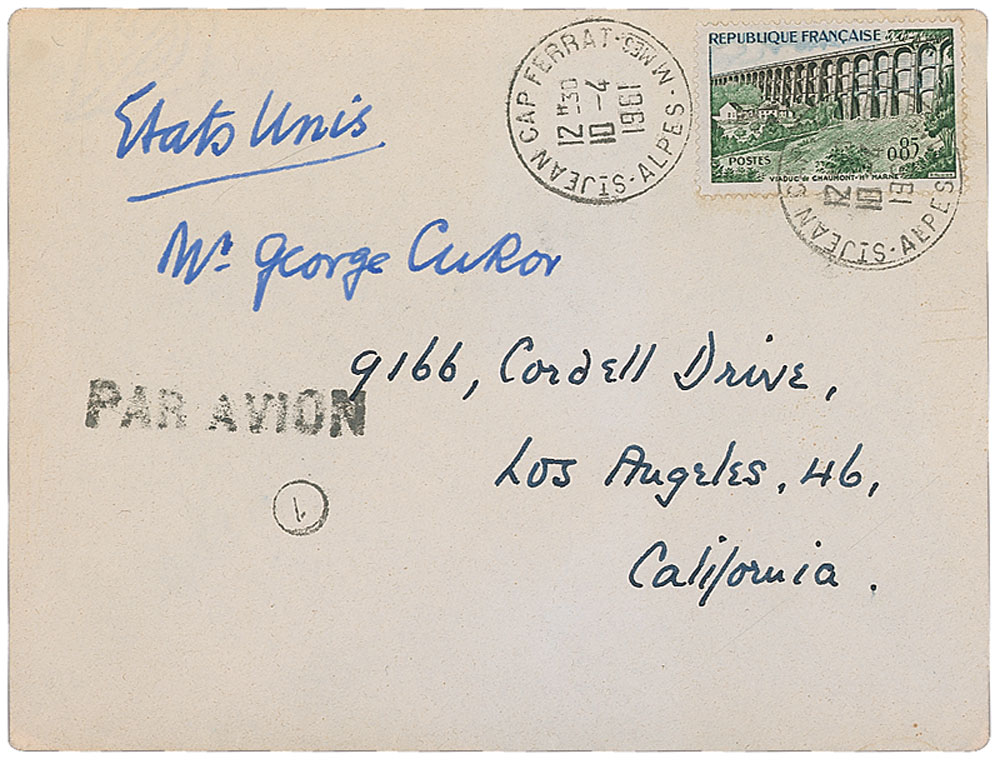 ST JEAN CAP FERRAT - ALPES - MMES
12 H30
10 - 4
1961
REPUBLIQUE FRANÇAISE
0,85
POSTES
VIADUC de CHAUMONT - Hte MARNE
ST JEAN C
ALPES
12
10
1961
Etats Unis
Mr. George CuKor
9166, Cordell Drive,
PAR AVION
Los Angeles, 46,
1
California.